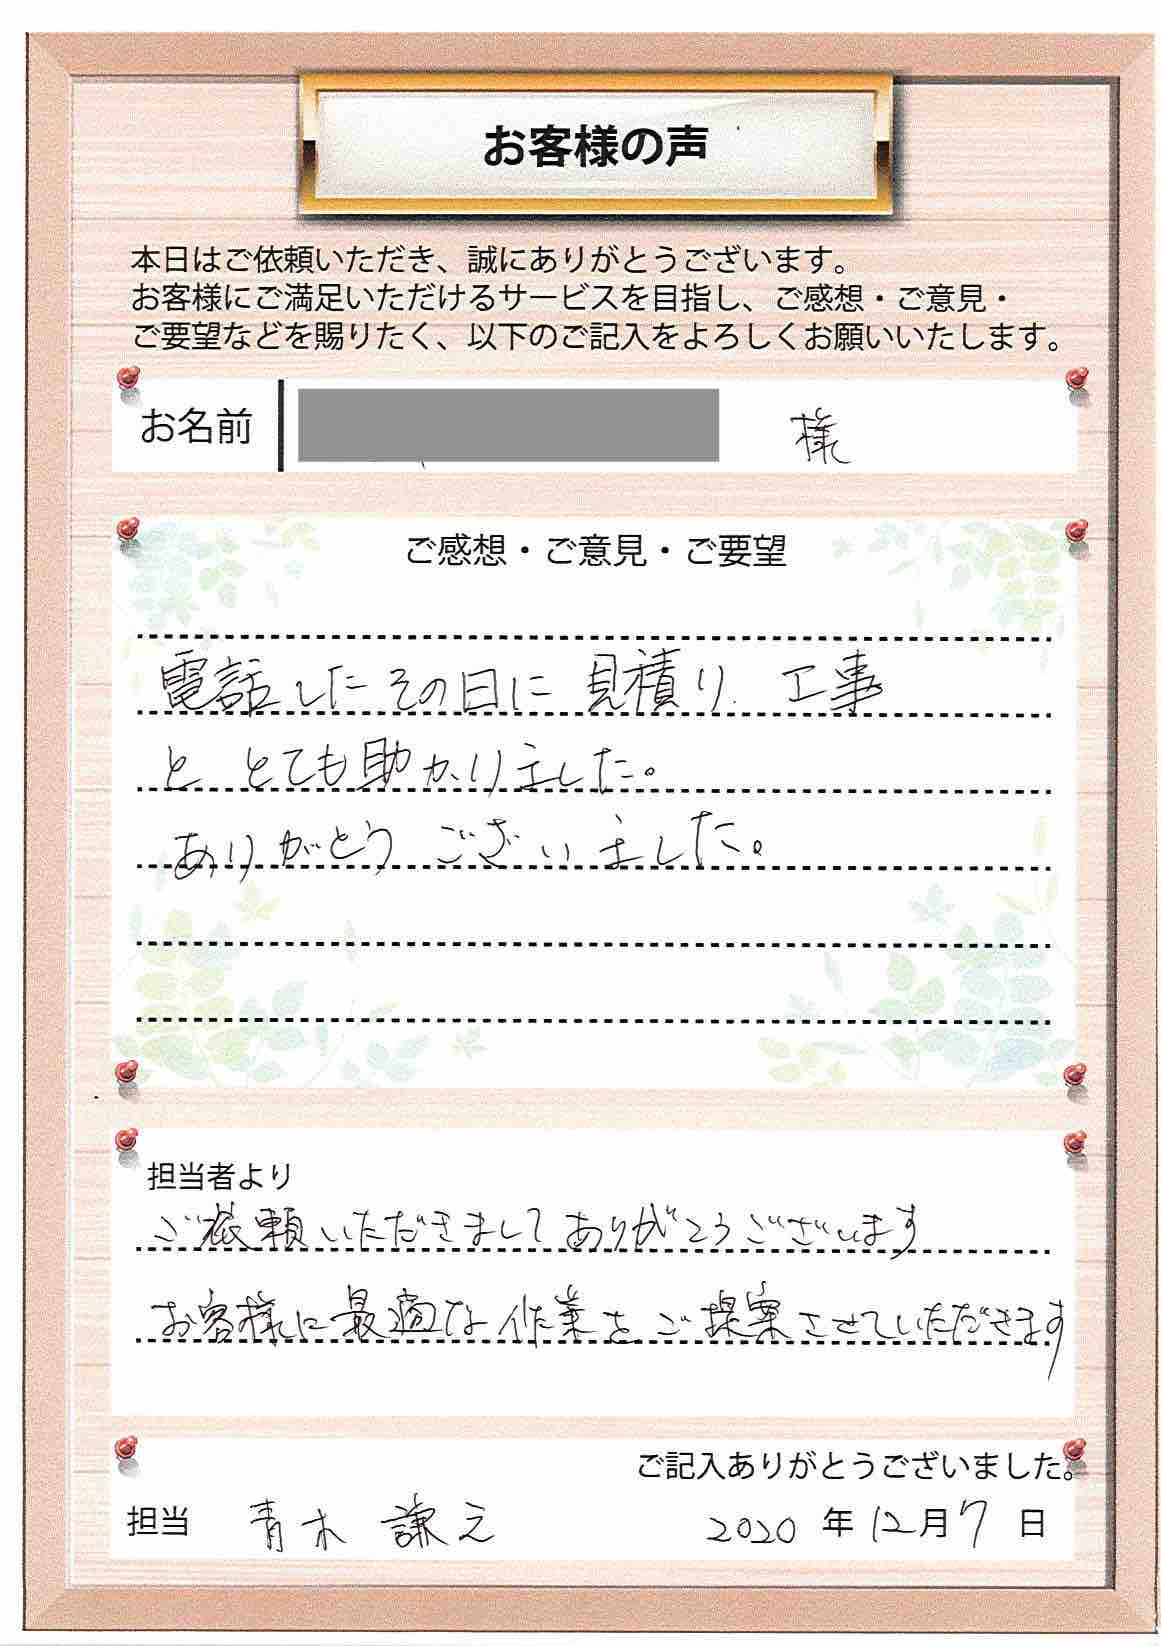 お客様の声
本日はご依頼いただき、誠にありがとうございます。
お客様にご満足いただけるサービスを目指し、ご感想・ご意見・
ご要望などを賜りたく、以下のご記入をよろしくお願いいたします。
お名前 様
ご感想・ご意見・ご要望
電話したその日に見積り、工事
と とても助かりました。
ありがとうございました。
担当者より
ご依頼いただきましてありがとうございます
お客様に最適な作業をご提案させていただきます
ご記入ありがとうございました。
担当 青木 謙之 2020 年 12 月 7 日